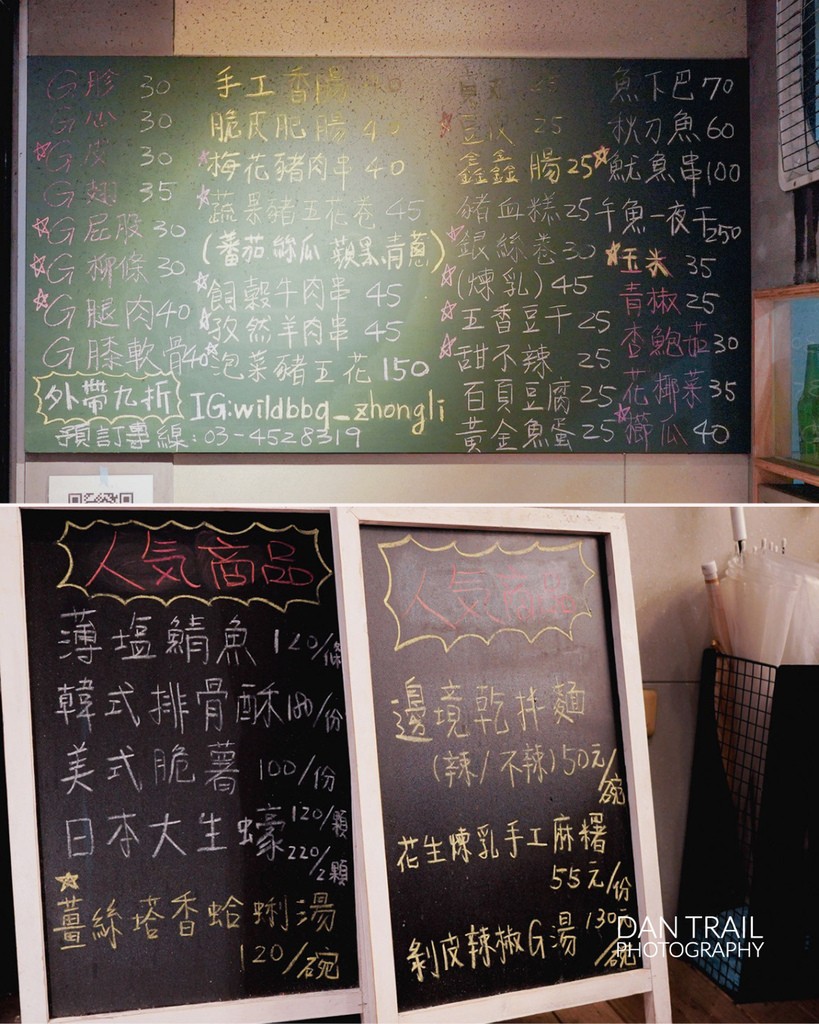 G胗 30
G心 30
☆G皮 30
G翅 35
☆G屁股 30
☆G柳條 30
☆G腿肉 40
G膝軟骨 40
外帶九折
預訂專線:03-4528319
手工香腸 40
脆皮肥腸 40
☆梅花豬肉串 40
☆蔬果豬五花卷 45
(蕃茄 絲瓜 蘋果 青蔥)
☆飼穀牛肉串 45
☆孜然羊肉串 45
☆泡菜豬五花 150
IG:wildbbq_zhongli
25
☆豆皮 25
鑫鑫腸 25
豬血糕 25
☆銀絲卷 30
☆(煉乳) 45
☆五香豆干 25
☆甜不辣 25
百頁豆腐 25
黃金魚蛋 25
魚下巴 70
秋刀魚 60
☆魷魚串 100
午魚一夜干 250
☆玉米 35
青椒 25
杏鮑茄 30
花椰菜 35
☆櫛瓜 40
人気商品
薄塩鯖魚 120/條
韓式排骨酥 180/份
美式脆薯 100/份
日本大生蠔 120/顆
220/2顆
☆薑絲塔香蛤蜊湯
120/碗
人気商品
邊境乾拌麵
(辣/不辣) 50元/碗
花生煉乳手工麻糬
55元/份
剝皮辣椒G湯 130元/碗
DAN TRAIL
PHOTOGRAPHY